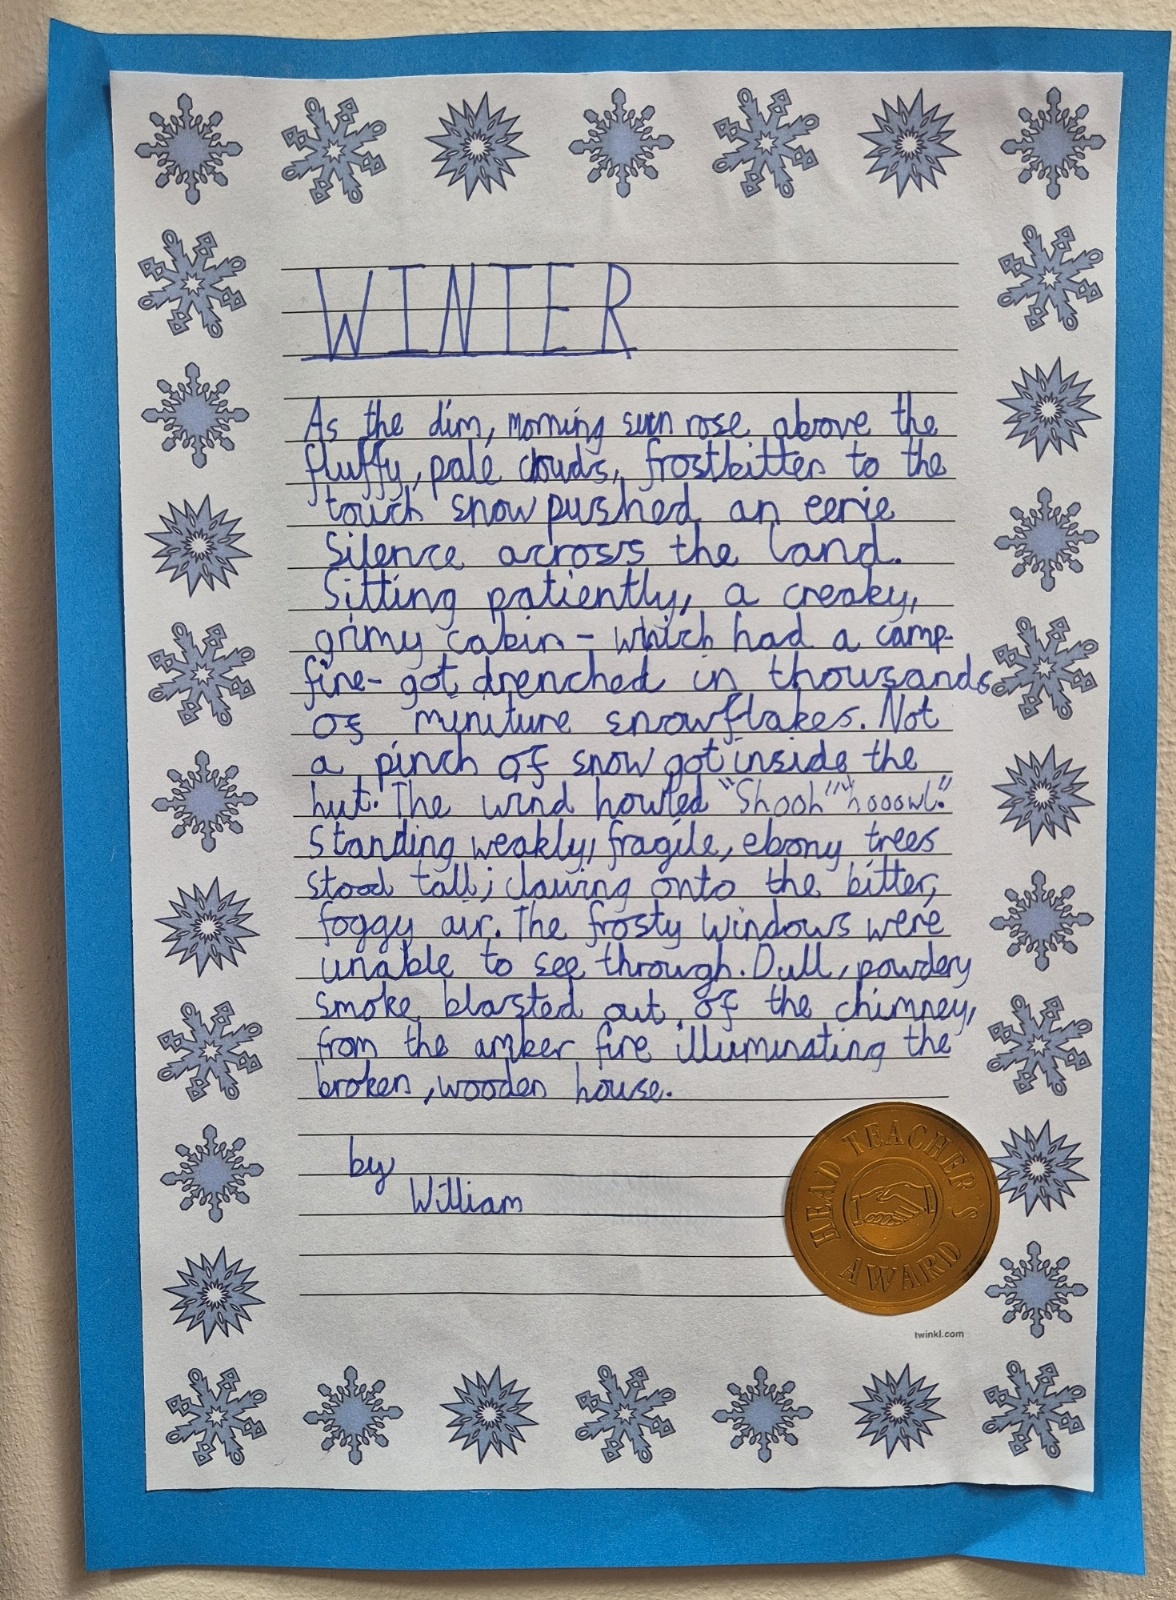 WINTER
As the dim, morning sun rose above the
fluffy, pale clouds, frostbitten to the
touch snow pushed an eerie
silence across the land.
Sitting patiently, a creaky,
grimy cabin - which had a camp-
fire - got drenched in thousands
of miniture snowflakes. Not
a pinch of snow got inside the
hut. The wind howled "Shooh" "hooowl."
Standing weakly, fragile, ebony trees
stood tall; clawing onto the bitter,
foggy air. The frosty windows were
unable to see through. Dull, powdery
smoke blasted out of the chimney,
from the amber fire illuminating the
broken, wooden house.
by
William
HEAD TEACHER'S
AWARD
twinkl.com